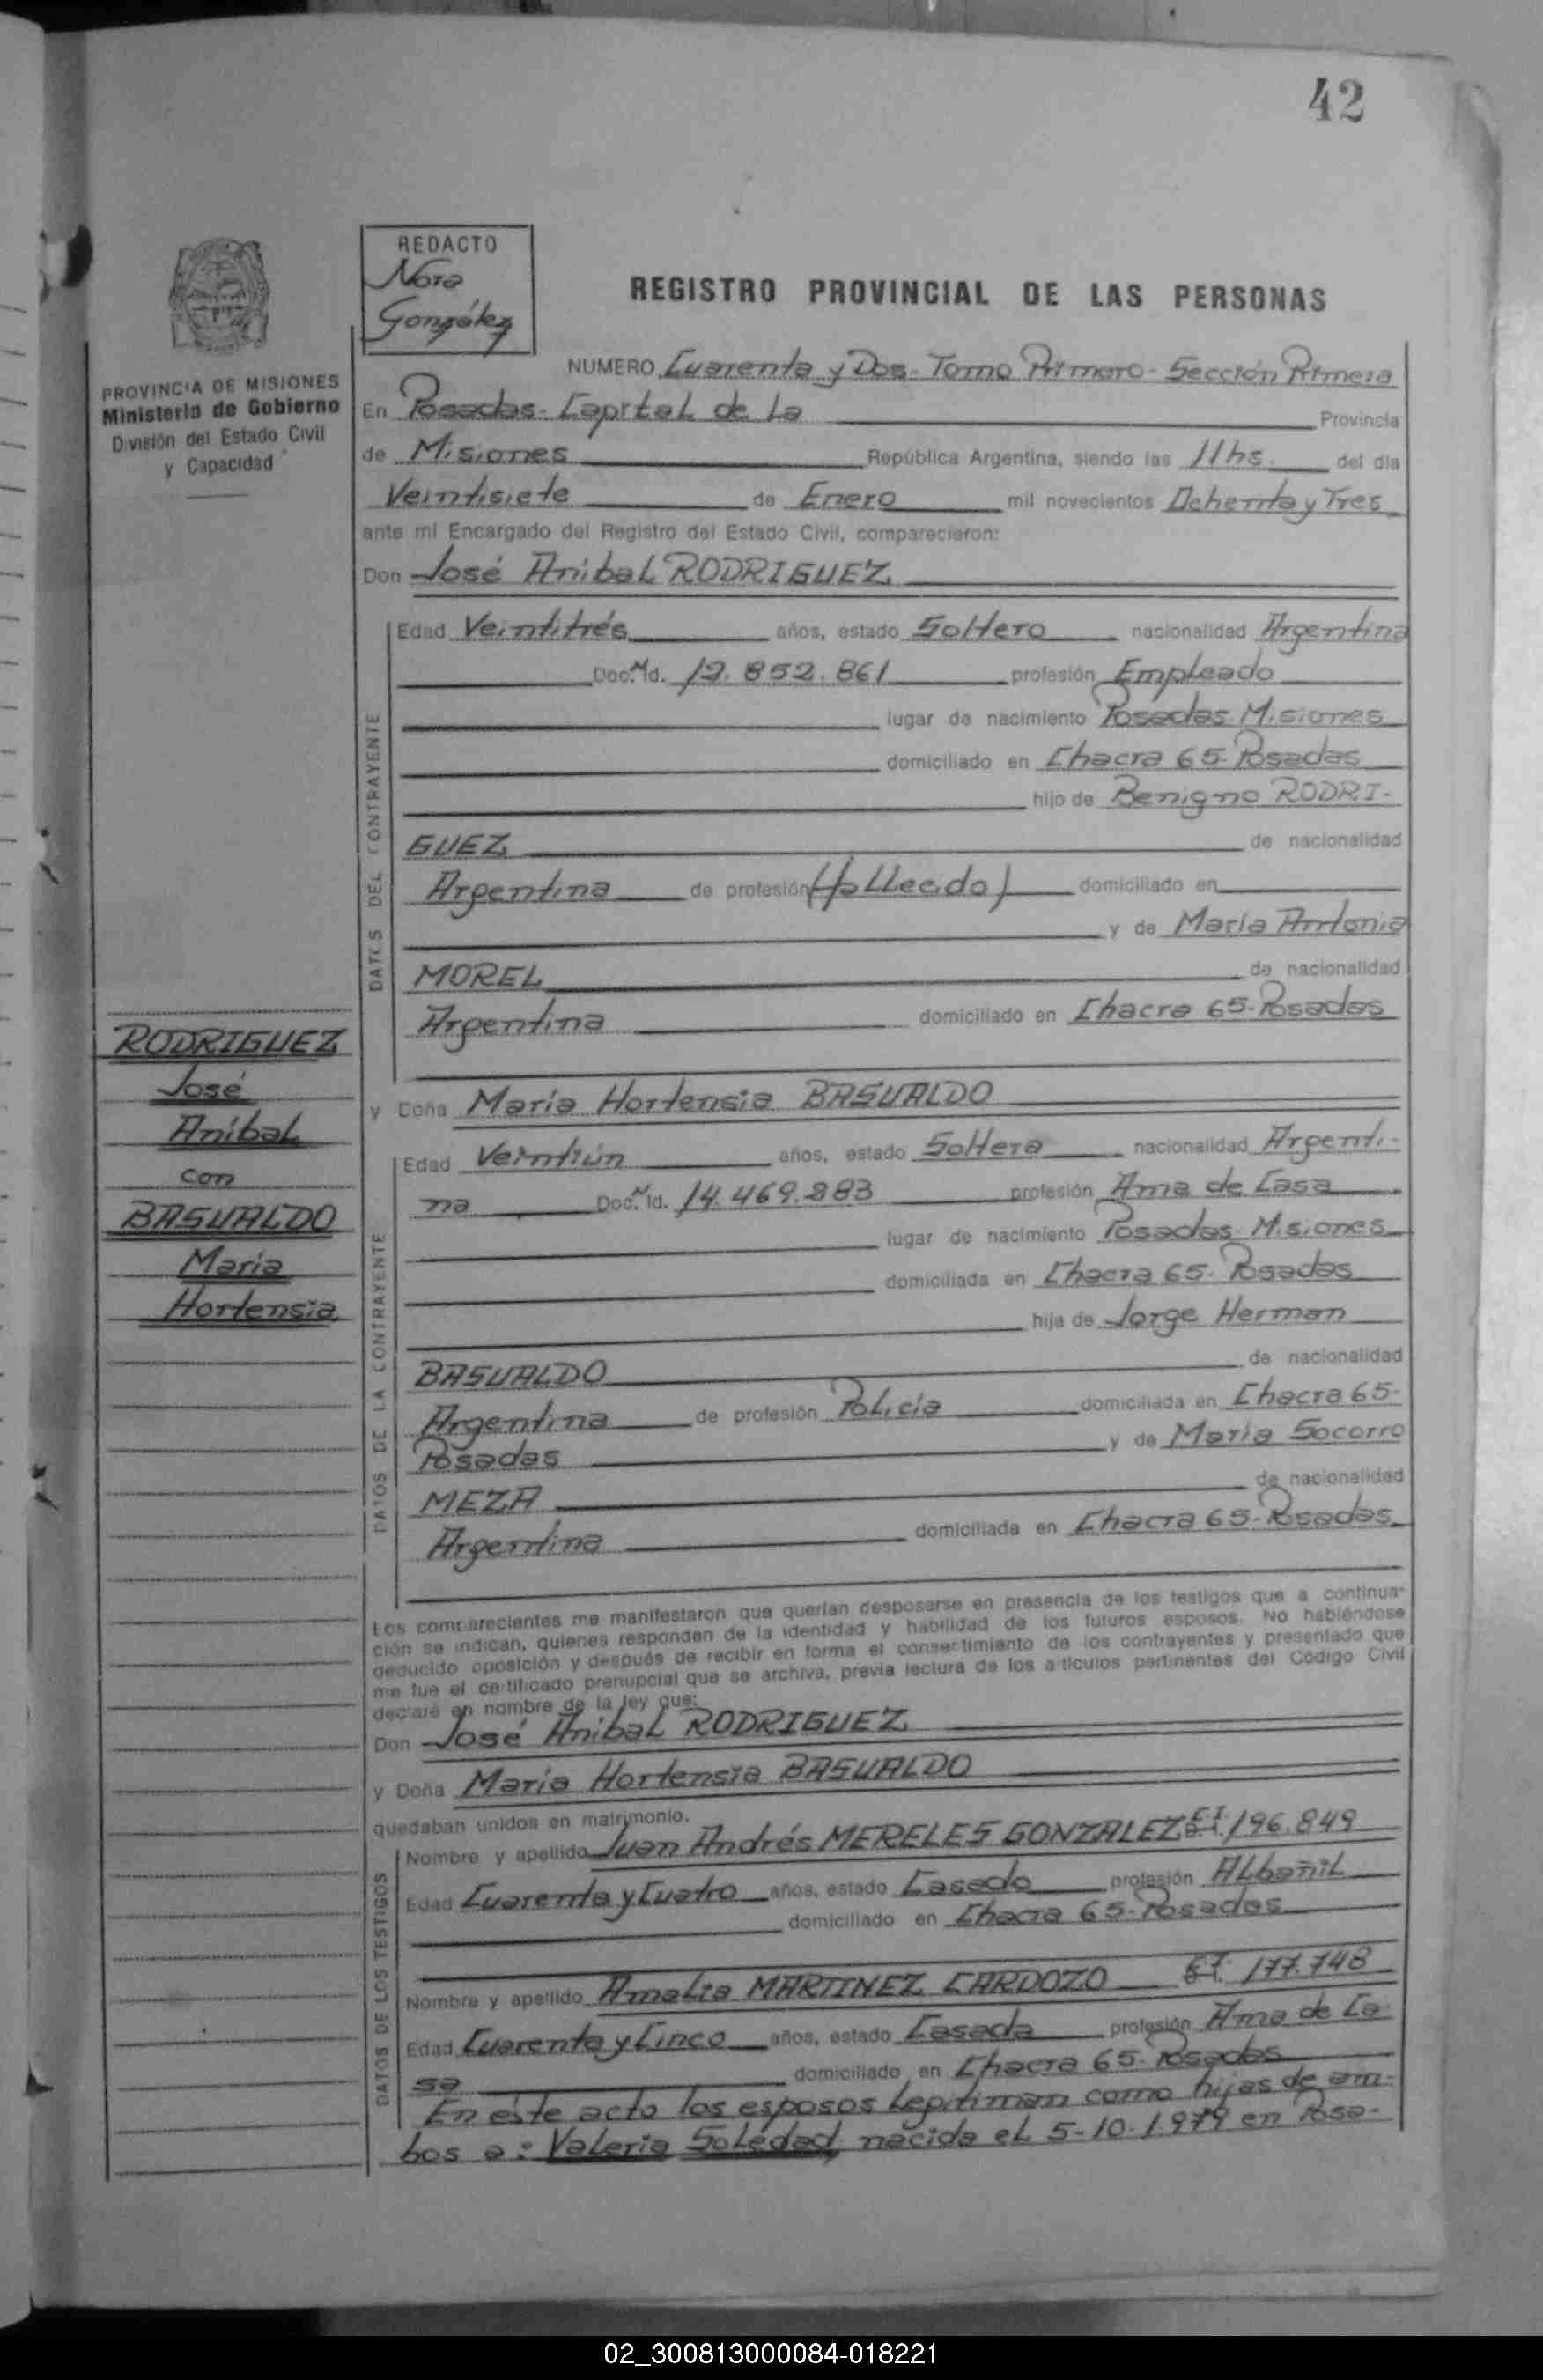 42
REDACTO
Nora
González
REGISTRO PROVINCIAL DE LAS PERSONAS
PROVINCIA DE MISIONES
Ministerio de Gobierno
División del Estado Civil
y Capacidad
NUMERO Cuarenta y Dos- Tomo Primero- Sección Primera
En Posadas- Capital de La Provincia
de Misiones República Argentina, siendo las 11hs. del día
Veintisiete de Enero mil novecientos Ochenta y Tres
ante mi Encargado del Registro del Estado Civil, comparecieron:
Don José Anibal RODRIGUEZ
DATOS DEL CONTRAYENTE
Edad Veintitrés años, estado Soltero nacionalidad Argentina
Doc. Nº Id. 12.852.861 profesión Empleado
lugar de nacimiento Posadas. Misiones
domiciliado en Chacra 65- Posadas
hijo de Benigno RODRI-
GUEZ de nacionalidad
Argentina de profesión (fallecido) domiciliado en
y de María Antonia
MOREL de nacionalidad
Argentina domiciliado en Chacra 65- Posadas
RODRIGUEZ
José
Anibal
con
BASUALDO
Maria
Hortensia
y Doña Maria Hortensia BASUALDO
DATOS DE LA CONTRAYENTE
Edad Veintiún años, estado Soltera nacionalidad Argenti-
na Doc. Nº Id. 14.469.883 profesión Ama de Casa
lugar de nacimiento Posadas- Misiones
domiciliada en Chacra 65- Posadas
hija de Jorge Herman
BASUALDO de nacionalidad
Argentina de profesión Policía domiciliada en Chacra 65-
Posadas y de María Socorro
MEZA de nacionalidad
Argentina domiciliada en Chacra 65- Posadas
Los comparecientes me manifestaron que querían desposarse en presencia de los testigos que a continua-
ción se indican, quienes responden de la identidad y habilidad de los futuros esposos. No habiéndose
deducido oposición y después de recibir en forma el consentimiento de los contrayentes y presentado que
me fue el certificado prenupcial que se archiva, previa lectura de los artículos pertinentes del Código Civil
declaré en nombre de la ley que:
Don José Anibal RODRIGUEZ
y Doña Maria Hortensia BASUALDO
quedaban unidos en matrimonio.
DATOS DE LOS TESTIGOS
Nombre y apellido Juan Andrés MERELES GONZALEZ C.I. 196.849
Edad Cuarenta y Cuatro años, estado Casado profesión Albañil
domiciliado en Chacra 65- Posadas
Nombre y apellido Amalia MARTINEZ CARDOZO C.I. 177.748
Edad Cuarenta y Cinco años, estado Casada profesión Ama de Ca-
sa domiciliado en Chacra 65- Posadas
En este acto los esposos legitiman como hijas de am-
bos a: Valeria Soledad, nacida el 5-10-1979 en Posa-
02_300813000084-018221